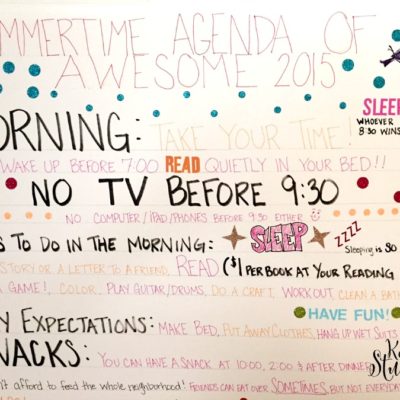 MMERTIME AGENDA OF
AWESOME 2015
SLEEP
WHOEVER
8:30 WINS
ORNING: TAKE YOUR TIME!
WAKE UP BEFORE 7:00 READ QUIETLY IN YOUR BED!!
NO TV BEFORE 9:30
NO COMPUTER/IPAD/PHONES BEFORE 9:30 EITHER
S TO DO IN THE MORNING: SLEEP ZZZZ Sleeping is SO
STORY OR A LETTER TO A FRIEND. READ ($1 PER BOOK AT YOUR READING
A GAME!, COLOR. PLAY GUITAR/DRUMS, DO A CRAFT. WORKOUT, CLEAN A BATH
HAVE FUN!
Y EXPECTATIONS: MAKE BED, PUT AWAY CLOTHES, HANG UP WET SUITS
NACKS: YOU CAN HAVE A SNACK AT 10:00, 2:00 & AFTER DINNER
afford to feed the whole neighborhood! FRIENDS CAN EAT OVER SOMETIMES, BUT NOT EVERYDAY